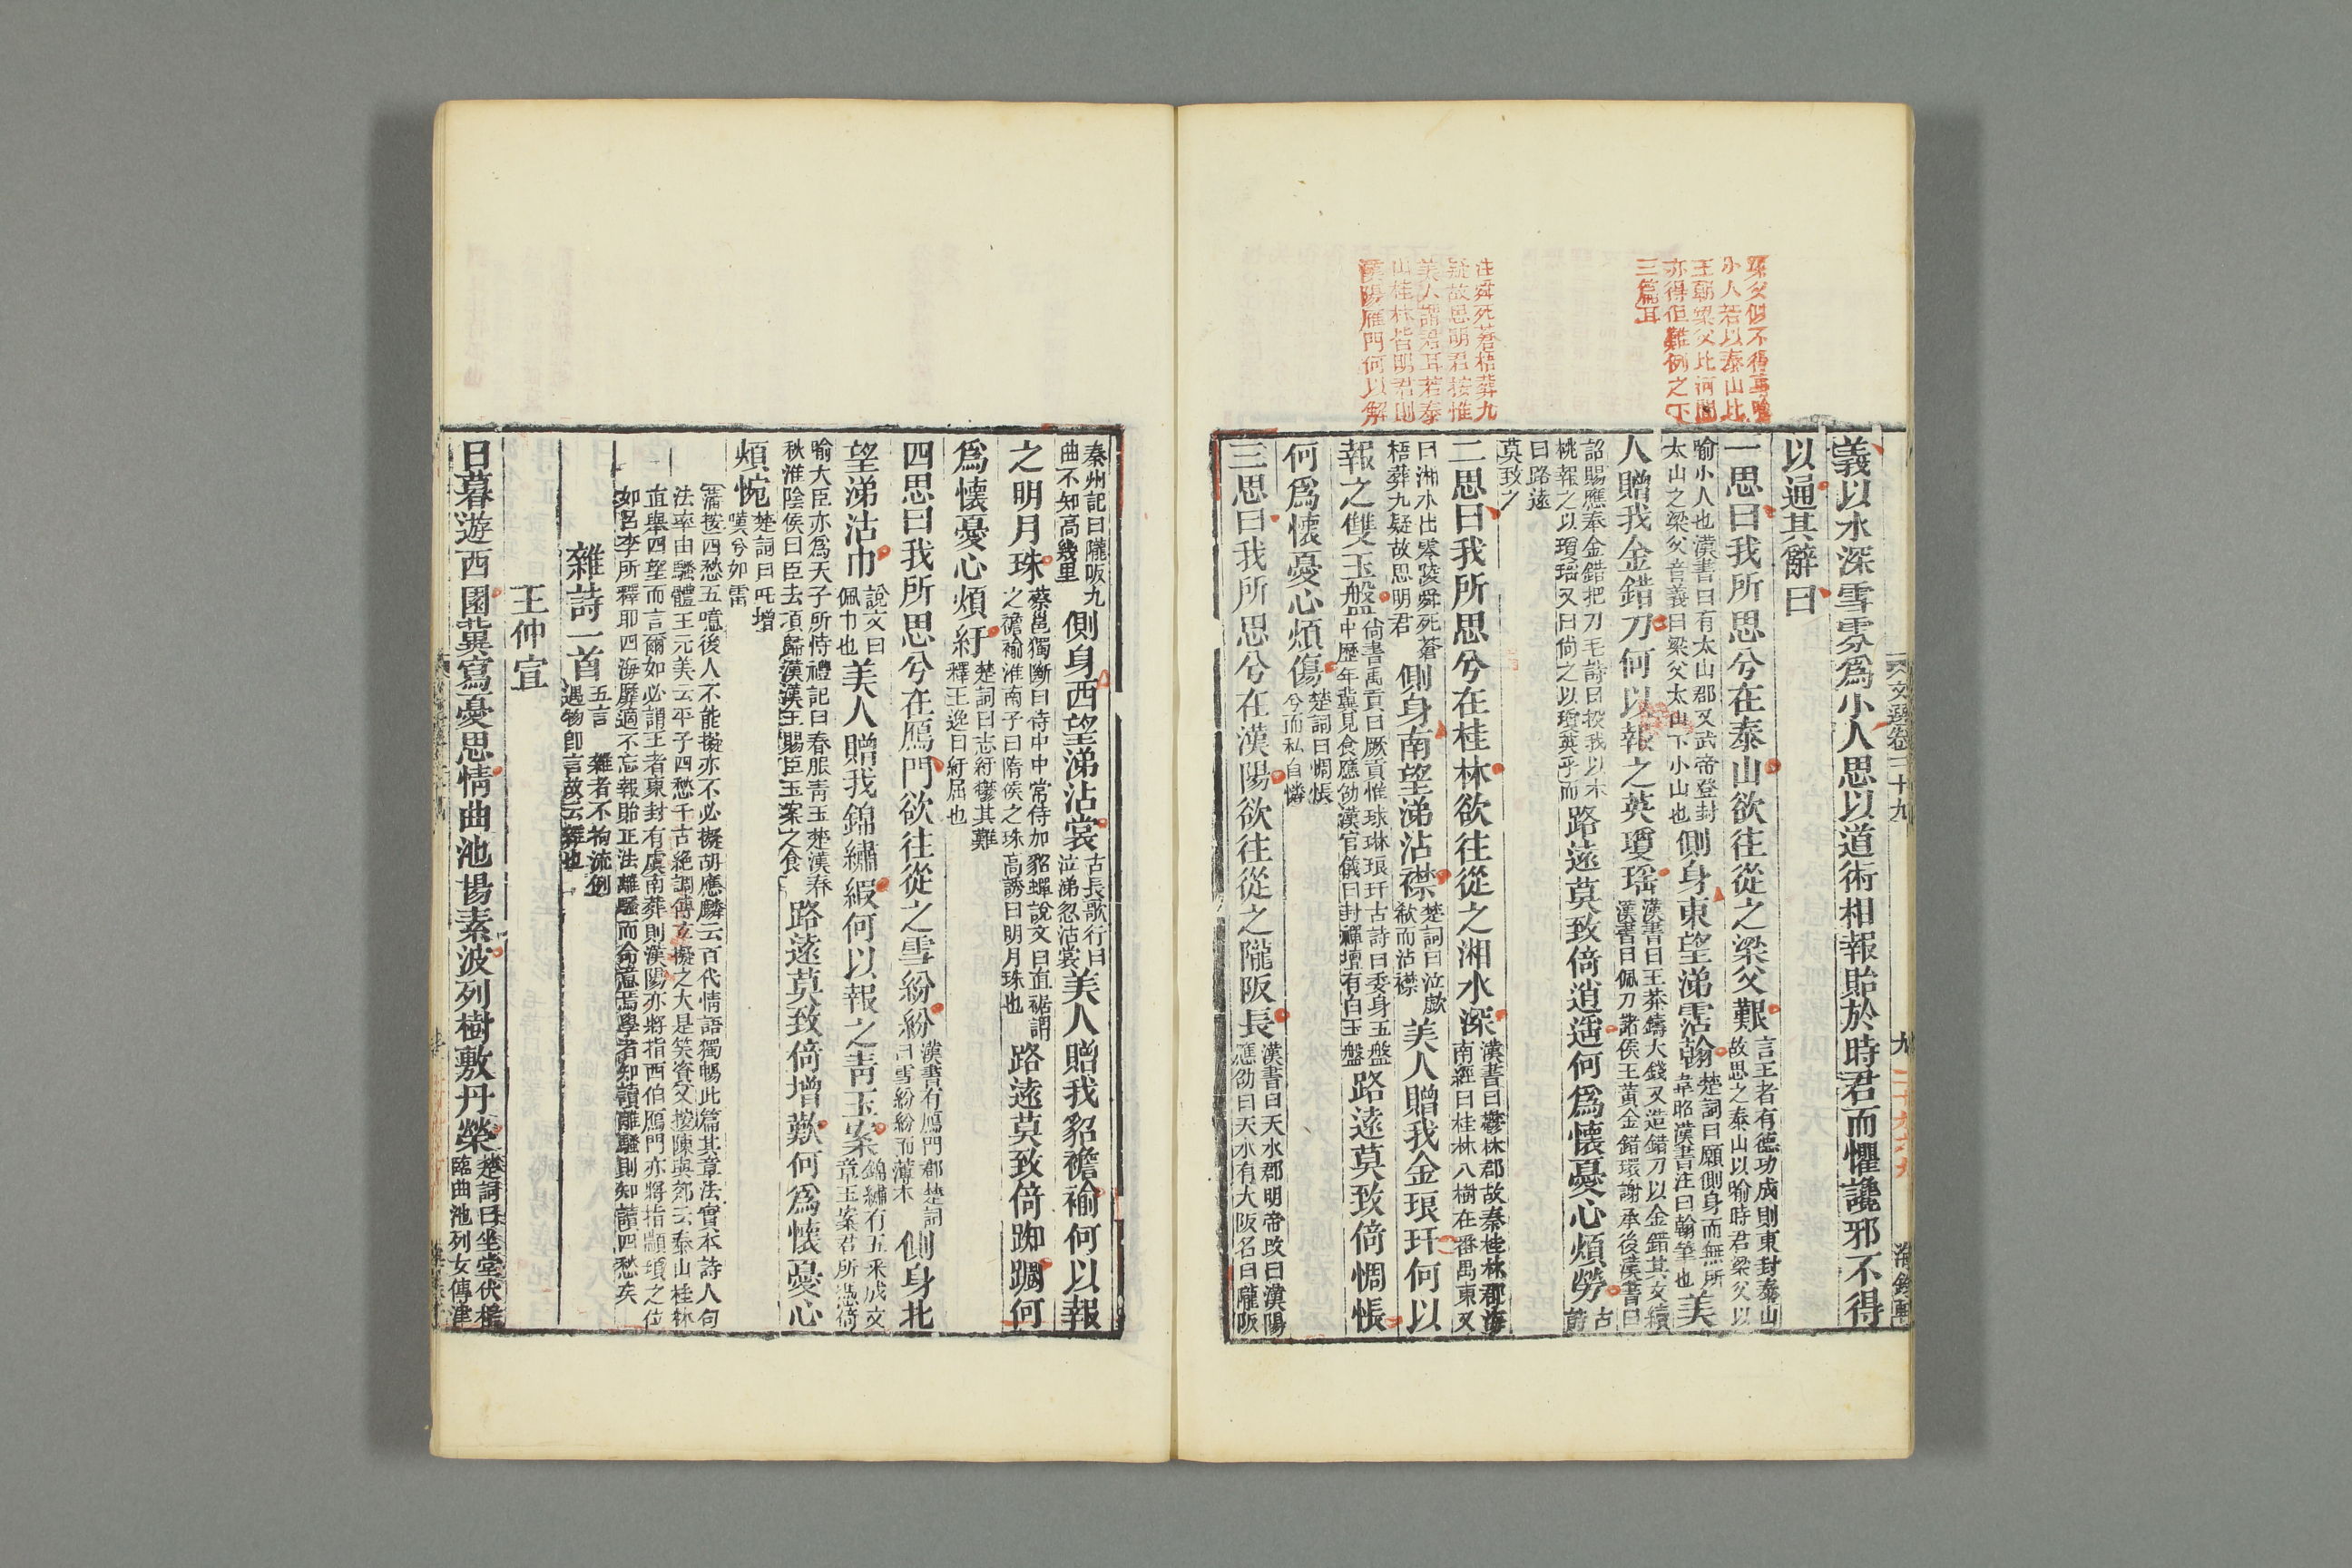 梁父似不得專喻
小人若以泰山比
王朝梁父比河間
亦得但難例之下
三篇耳
注舜死蒼梧葬九
疑故思明君按惟
美人謂君耳若泰
山桂林皆明君則
漢陽雁門何以解
文選卷二十九
九
海錄軒
義以水深雪雰爲小人思以道術相報貽於時君而懼讒邪不得
以通其辭曰
一思曰我所思兮在泰山欲往從之梁父艱
言王者有德功成則東封泰山
故思之泰山以喻時君梁父以
喻小人也漢書曰有太山郡又武帝登封
太山之梁父音義曰梁父太山下小山也
側身東望涕霑翰
楚詞曰願側身而無所
韋昭漢書注曰翰筆也
美
人贈我金錯刀何以報之英瓊瑤
漢書曰王莽鑄大錢又造錯刀以金錯其文續
漢書曰佩刀諸侯王黃金錯環謝承後漢書曰
詔賜應奉金錯把刀毛詩曰投我以木
桃報之以瓊瑤又曰尚之以瓊英乎而
路遠莫致倚逍遙何爲懷憂心煩勞
古
詩
曰路遠
莫致之
二思曰我所思兮在桂林欲往從之湘水深
漢書曰鬱林郡故秦桂林郡海
南經曰桂林八樹在番禺東又
曰湘水出零陵舜死蒼
梧葬九疑故思明君
側身南望涕沾襟
楚詞曰泣歔
欷而沾襟
美人贈我金琅玕何以
報之雙玉盤
尚書禹貢曰厥貢惟球琳琅玕古詩曰委身玉盤
中歷年冀見食應劭漢官儀曰封禪壇有白玉盤
路遠莫致倚惆悵
何爲懷憂心煩傷
楚詞曰惆悵
兮而私自憐
三思曰我所思兮在漢陽欲往從之隴阪長
漢書曰天水郡明帝改曰漢陽
應劭曰天水有大阪名曰隴阪
秦州記曰隴阪九
曲不知高幾里
側身西望涕沾裳
古長歌行曰
泣涕忽沾裳
美人贈我貂襜褕何以報
之明月珠
蔡邕獨斷曰侍中中常侍加貂蟬說文曰直裾謂
之襜褕淮南子曰隋侯之珠高誘曰明月珠也
路遠莫致倚踟躕何
爲懷憂心煩紆
楚詞曰志紆鬱其難
釋王逸曰紆屈也
四思曰我所思兮在鴈門欲往從之雪紛紛
漢書有鴈門郡楚詞
曰雪紛紛而薄木
側身北
望涕沾巾
說文曰
佩巾也
美人贈我錦繡緞何以報之靑玉案
錦繡有五采成文
章玉案君所憑倚
喻大臣亦爲天子所恃禮記曰春服靑玉楚漢春
秋淮陰侯曰臣去項歸漢漢王賜臣玉案之食
路遠莫致倚增歎何爲懷憂心
煩惋
楚詞曰吒增
嘆兮如雷
蒲按四愁五噫後人不能擬亦不必擬胡應麟云百代情語獨暢此篇其章法實本詩人句
法率由騷體王元美云平子四愁千古絶調傅玄擬之大是笑資又按陳與郊云泰山桂林
直舉四望而言爾如必謂王者東封有虞南葬則漢陽亦將指西伯鴈門亦將指顓頊之位
如呂李所釋耶四海靡適不忘報貽正法離騷而命意焉學者知讀離騷則知讀四愁矣
雜詩一首
五言 雜者不拘流例
遇物卽言故云雜也
王仲宣
日暮遊西園冀寫憂思情曲池揚素波列樹敷丹榮
楚詞曰坐堂伏檻
臨曲池列女傳津